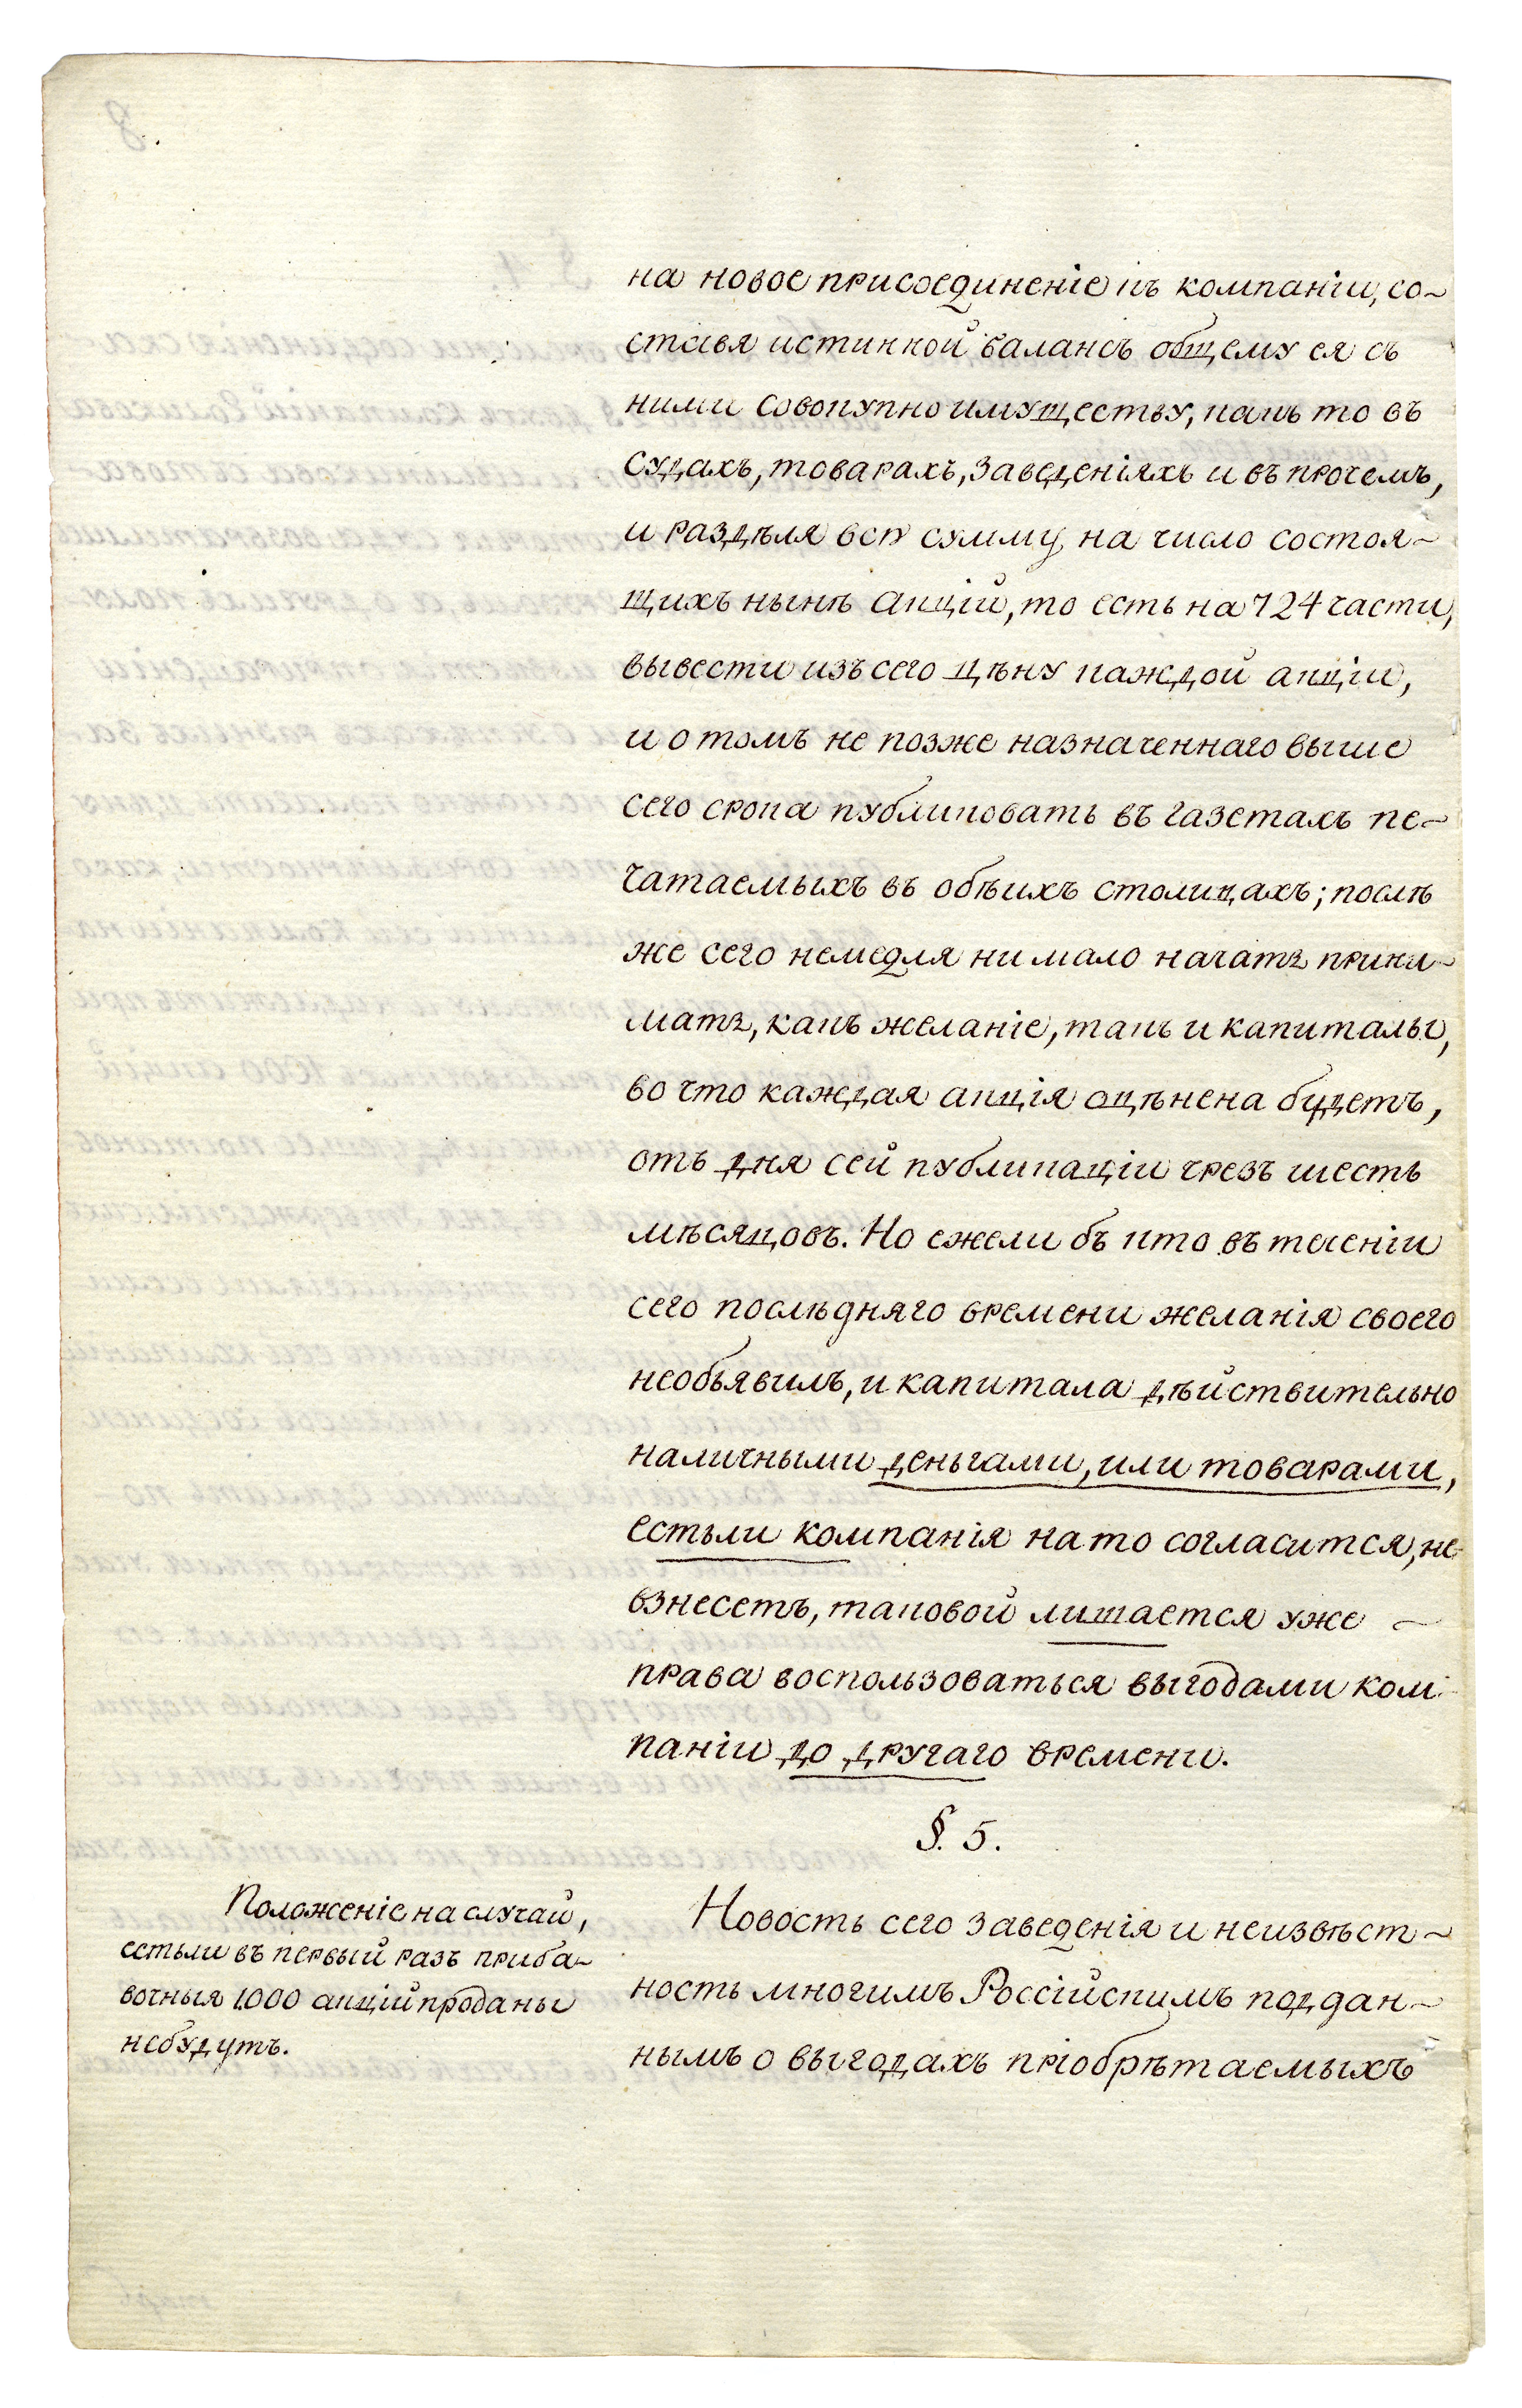 на новое присоединеніе къ компаніи, со-
ставя истинной балансъ общему ея съ
ними совокупно имуществу, какъ то въ
судахъ, товарахъ, заведеніяхъ и въ прочемъ,
и раздѣля всю сумму на число состоя-
щихъ нынѣ акцій, то есть на 724 части,
вывести изъ сего цѣну каждой акціи,
и о томъ не позже назначеннаго выше
сего срока публиковать въ газетахъ пе-
чатаемыхъ въ обѣихъ столицахъ; послѣ
же сего немедля ни мало начать прини-
мать, какъ желаніе, такъ и капиталы,
во что каждая акція оцѣнена будетъ,
отъ дня сей публикаціи чрезъ шесть
мѣсяцовъ. Но ежели бъ кто въ теченіи
сего послѣдняго времени желанія своего
необъявилъ, и капитала дѣйствительно
наличными деньгами, или товарами,
естьли компанія на то согласится, не
взнесетъ, таковой лишается уже
права воспользоваться выгодами ком-
паніи до другаго времени.
§. 5.
Положеніе на случай,
естьли въ первый разъ приба-
вочныя 1.000 акцій проданы
небудутъ.
Новость сего заведенія и неизвѣст-
ность многимъ Россійскимъ поддан-
нымъ о выгодахъ пріобрѣтаемыхъ